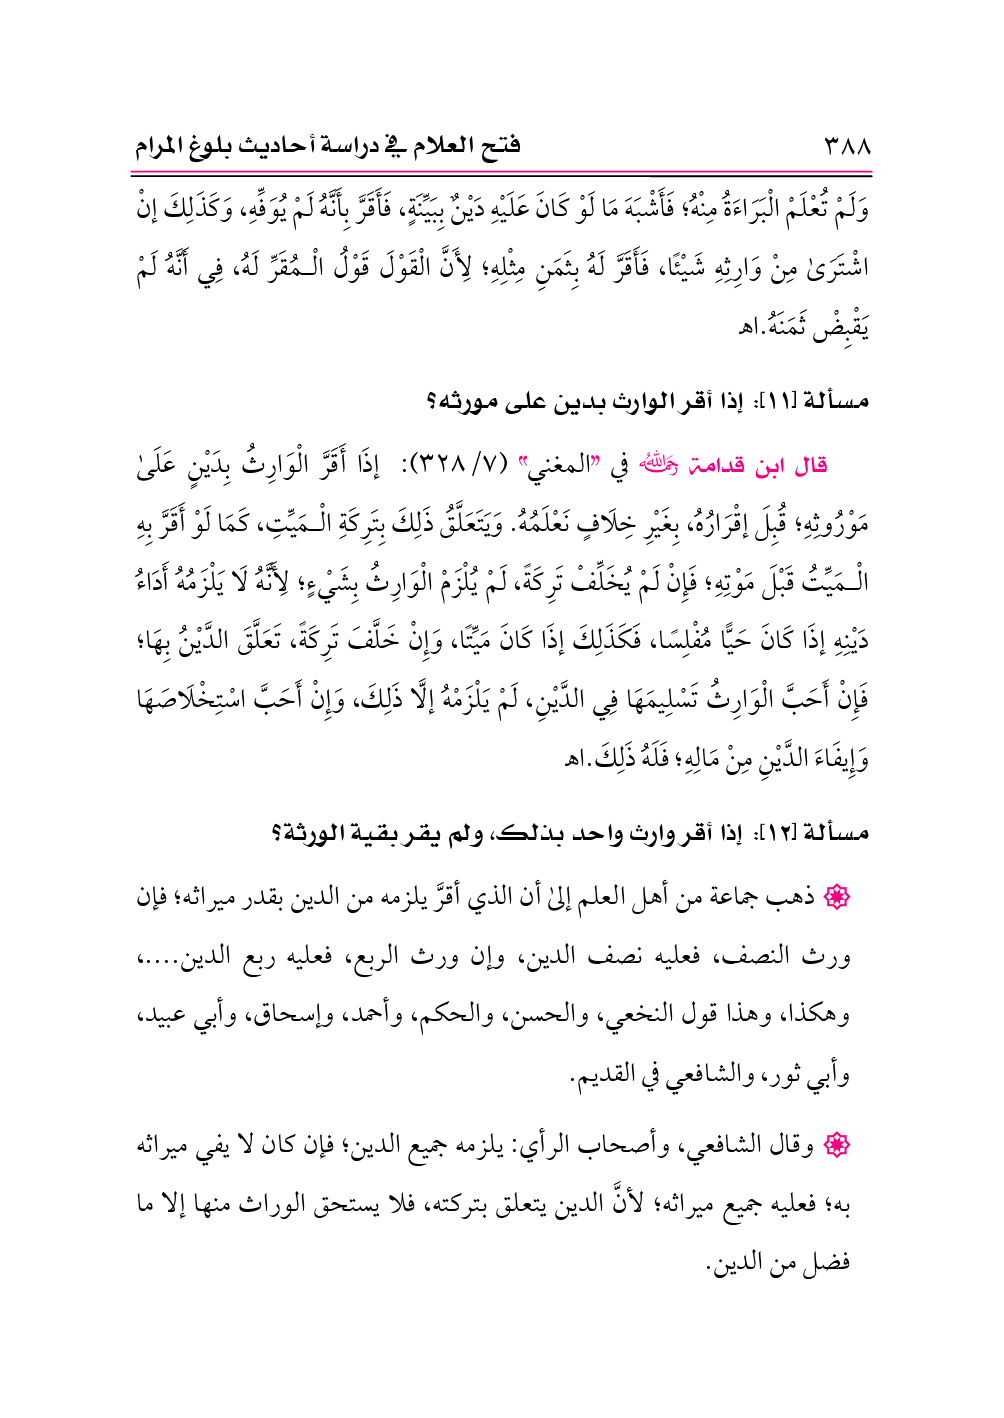 ٣٨٨ فتح العلام في دراسة أحاديث بلوغ المرام
وَلَمْ تُعْلَمْ الْبَرَاءَةُ مِنْهُ؛ فَأَشْبَهَ مَا لَوْ كَانَ عَلَيْهِ دَيْنٌ بِبَيِّنَةٍ، فَأَقَرَّ بِأَنَّهُ لَمْ يُوَفِّهِ، وَكَذَلِكَ إنْ
اشْتَرَىٰ مِنْ وَارِثِهِ شَيْئًا، فَأَقَرَّ لَهُ بِثَمَنِ مِثْلِهِ؛ لِأَنَّ الْقَوْلَ قَوْلُ الْـمُقَرِّ لَهُ، فِي أَنَّهُ لَمْ
يَقْبِضْ ثَمَنَهُ.اهـ
مسألة [١١]: إذا أقر الوارث بدين على مورثه؟
قال ابن قدامة رحمه الله في "المغني" (٧/ ٣٢٨): إذَا أَقَرَّ الْوَارِثُ بِدَيْنٍ عَلَىٰ
مَوْرُوثِهِ؛ قُبِلَ إقْرَارُهُ، بِغَيْرِ خِلَافٍ نَعْلَمُهُ. وَيَتَعَلَّقُ ذَلِكَ بِتَرِكَةِ الْـمَيِّتِ، كَمَا لَوْ أَقَرَّ بِهِ
الْـمَيِّتُ قَبْلَ مَوْتِهِ؛ فَإِنْ لَمْ يُخَلِّفْ تَرِكَةً، لَمْ يُلْزَمْ الْوَارِثُ بِشَيْءٍ؛ لِأَنَّهُ لَا يَلْزَمُهُ أَدَاءُ
دَيْنِهِ إذَا كَانَ حَيًّا مُفْلِسًا، فَكَذَلِكَ إذَا كَانَ مَيِّتًا، وَإِنْ خَلَّفَ تَرِكَةً، تَعَلَّقَ الدَّيْنُ بِهَا؛
فَإِنْ أَحَبَّ الْوَارِثُ تَسْلِيمَهَا فِي الدَّيْنِ، لَمْ يَلْزَمْهُ إلَّا ذَلِكَ، وَإِنْ أَحَبَّ اسْتِخْلَاصَهَا
وَإِيفَاءَ الدَّيْنِ مِنْ مَالِهِ؛ فَلَهُ ذَلِكَ.اهـ
مسألة [١٢]: إذا أقر وارث واحد بذلك، ولم يقر بقية الورثة؟
ذهب جماعة من أهل العلم إلىٰ أن الذي أقرَّ يلزمه من الدين بقدر ميراثه؛ فإن
ورث النصف، فعليه نصف الدين، وإن ورث الربع، فعليه ربع الدين....،
وهكذا، وهذا قول النخعي، والحسن، والحكم، وأحمد، وإسحاق، وأبي عبيد،
وأبي ثور، والشافعي في القديم.
وقال الشافعي، وأصحاب الرأي: يلزمه جميع الدين؛ فإن كان لا يفي ميراثه
به؛ فعليه جميع ميراثه؛ لأنَّ الدين يتعلق بتركته، فلا يستحق الوراث منها إلا ما
فضل من الدين.